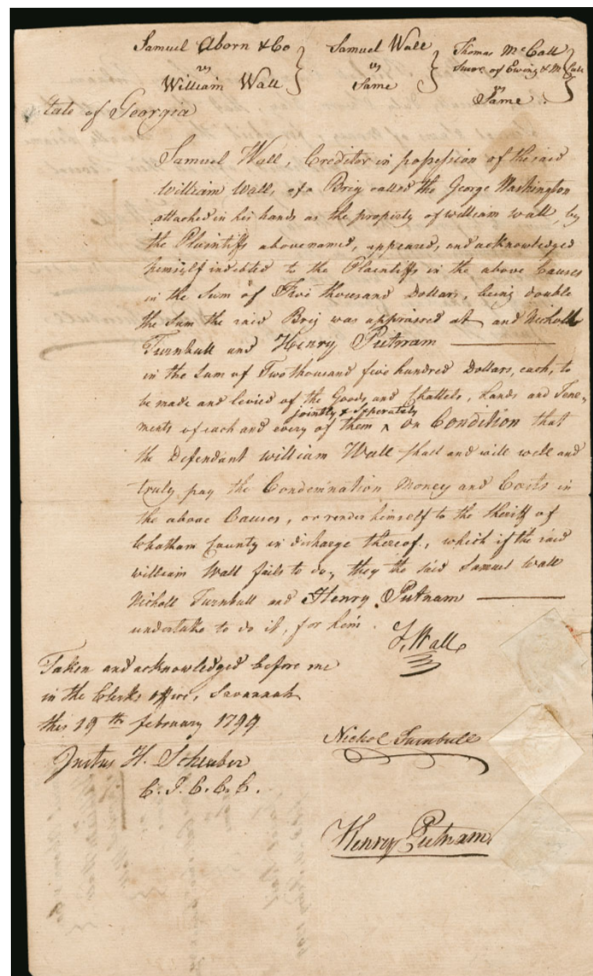 Samuel Aborn & Co
vs
William Wall
Samuel Wall
vs
Same
Thomas McCall
Survr of Ewing & McCall
vs
Same
State of Georgia
Samuel Wall, Creditor in possession of the said
William Wall, of a Brig called the George Washington
attached in his hands as the property of William Wall, by
the Plaintiffs above named, appeared, and acknowledged
himself indebted to the Plaintiffs in the above Causes
in the Sum of Five thousand Dollars, being double
the Sum the said Brig was appraised at and Nicholl
Turnbull and Henry Putnam
in the Sum of Two thousand five hundred Dollars, each, to
be made and levied of the Goods and Chattels, Lands and Tene-
jointly & Seperately
ments of each and every of them ^ on Condition that
the Defendant William Wall shall and will well and
truly pay the Condemnation Money and Costs in
the above Causes, or render himself to the Sheriff of
Chatham County in discharge thereof, which if the said
William Wall fails to do, they the said Samuel Wall
Nicholl Turnbull and Henry Putnam
undertake to do it, for him.
S, Wall
Taken and acknowledged before me
in the Clerks office, Savannah
this 19th february 1799
Justus H. Scheuber
Nichol Turnbull
Henry Putnam